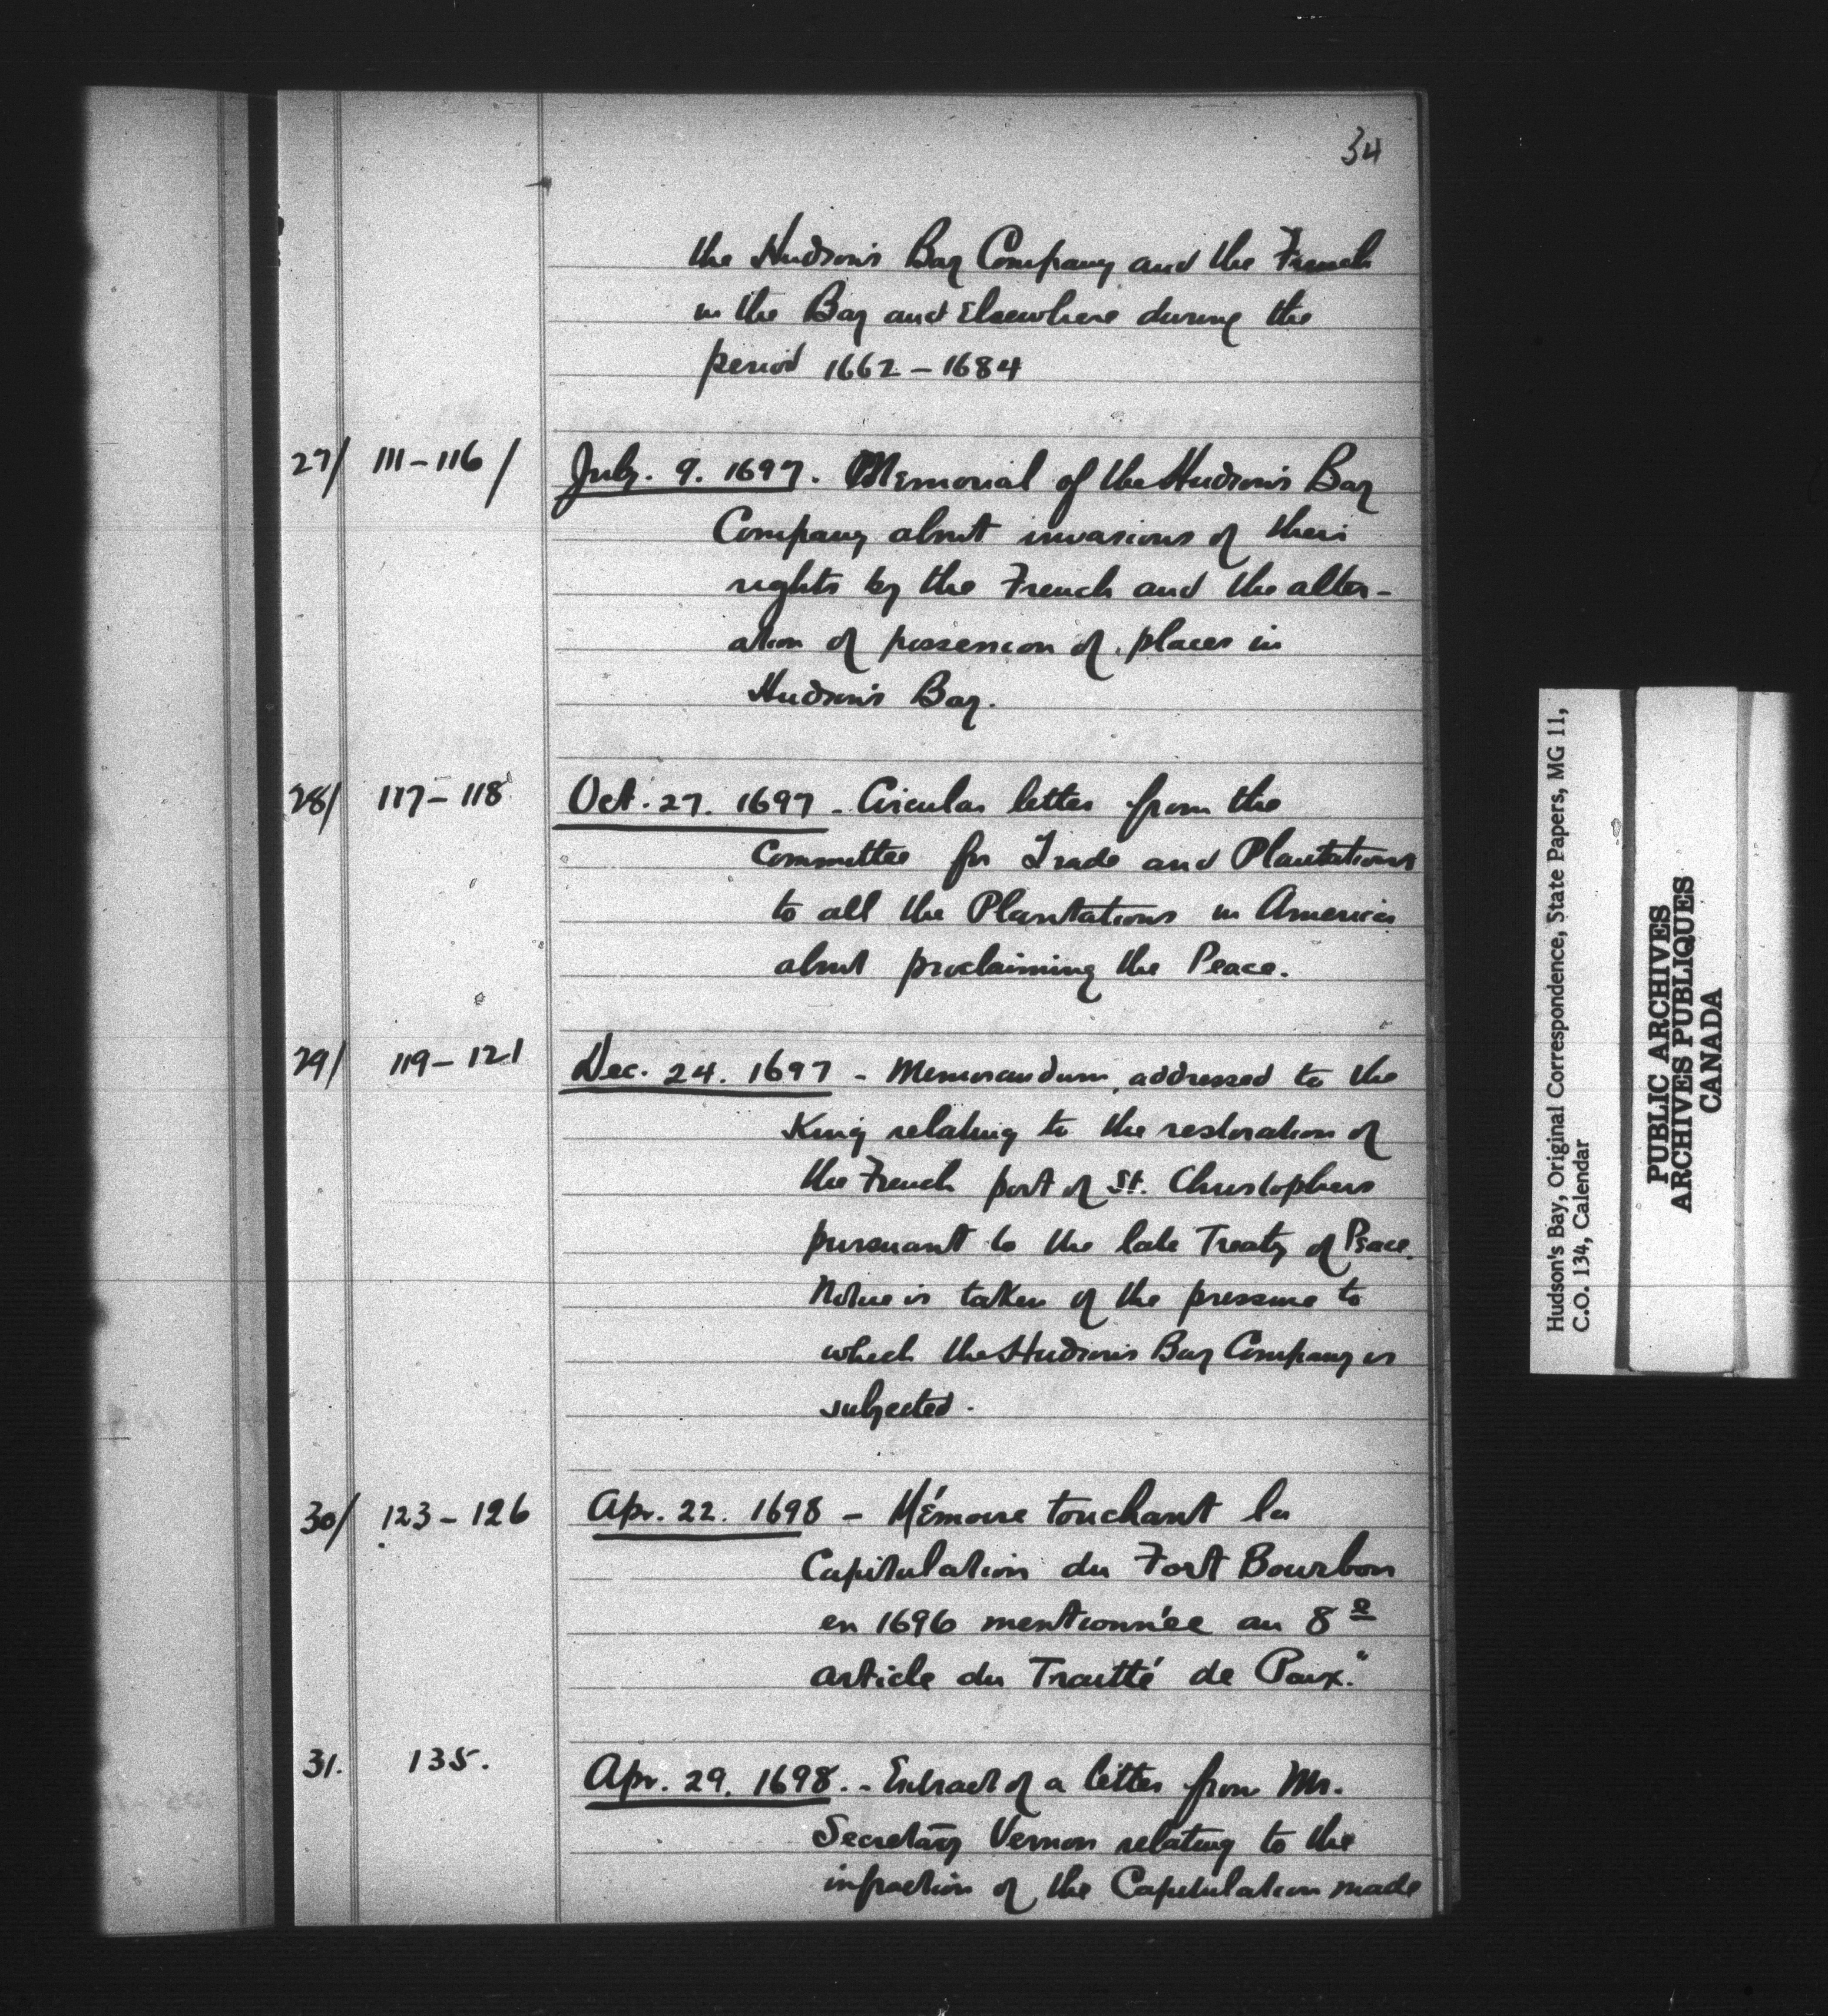 34
the Hudson's Bay Company and the French
in the Bay and Elsewhere during the
period 1662 – 1684
27/ 111–116/ July. 9. 1697. Memorial of the Hudson's Bay
Company about invasions of their
rights by the French and the alter-
ation of possession of places in
Hudson's Bay.
28/ 117–118 Oct. 27. 1697 – Circular letter from the
Committee for Trade and Plantations
to all the Plantations in America
about proclaiming the Peace.
29/ 119–121 Dec. 24. 1697 – Memorandum addressed to the
King relating to the restoration of
the French part of St. Christophers
pursuant to the late Treaty of Peace.
Notice is taken of the pressure to
which the Hudson's Bay Company is
subjected.
30/ 123–126 Apr. 22. 1698 – Mémoire touchant la
Capitulation du Fort Bourbon
en 1696 mentionnée au 8e
article du Traitté de Paix."
31. 135. Apr. 29. 1698. – Extract of a letter from Mr.
Secretary Vernon relating to the
infraction of the Capitulation made
Hudson's Bay, Original Correspondence, State Papers, MG 11,
C.O. 134, Calendar
PUBLIC ARCHIVES
ARCHIVES PUBLIQUES
CANADA